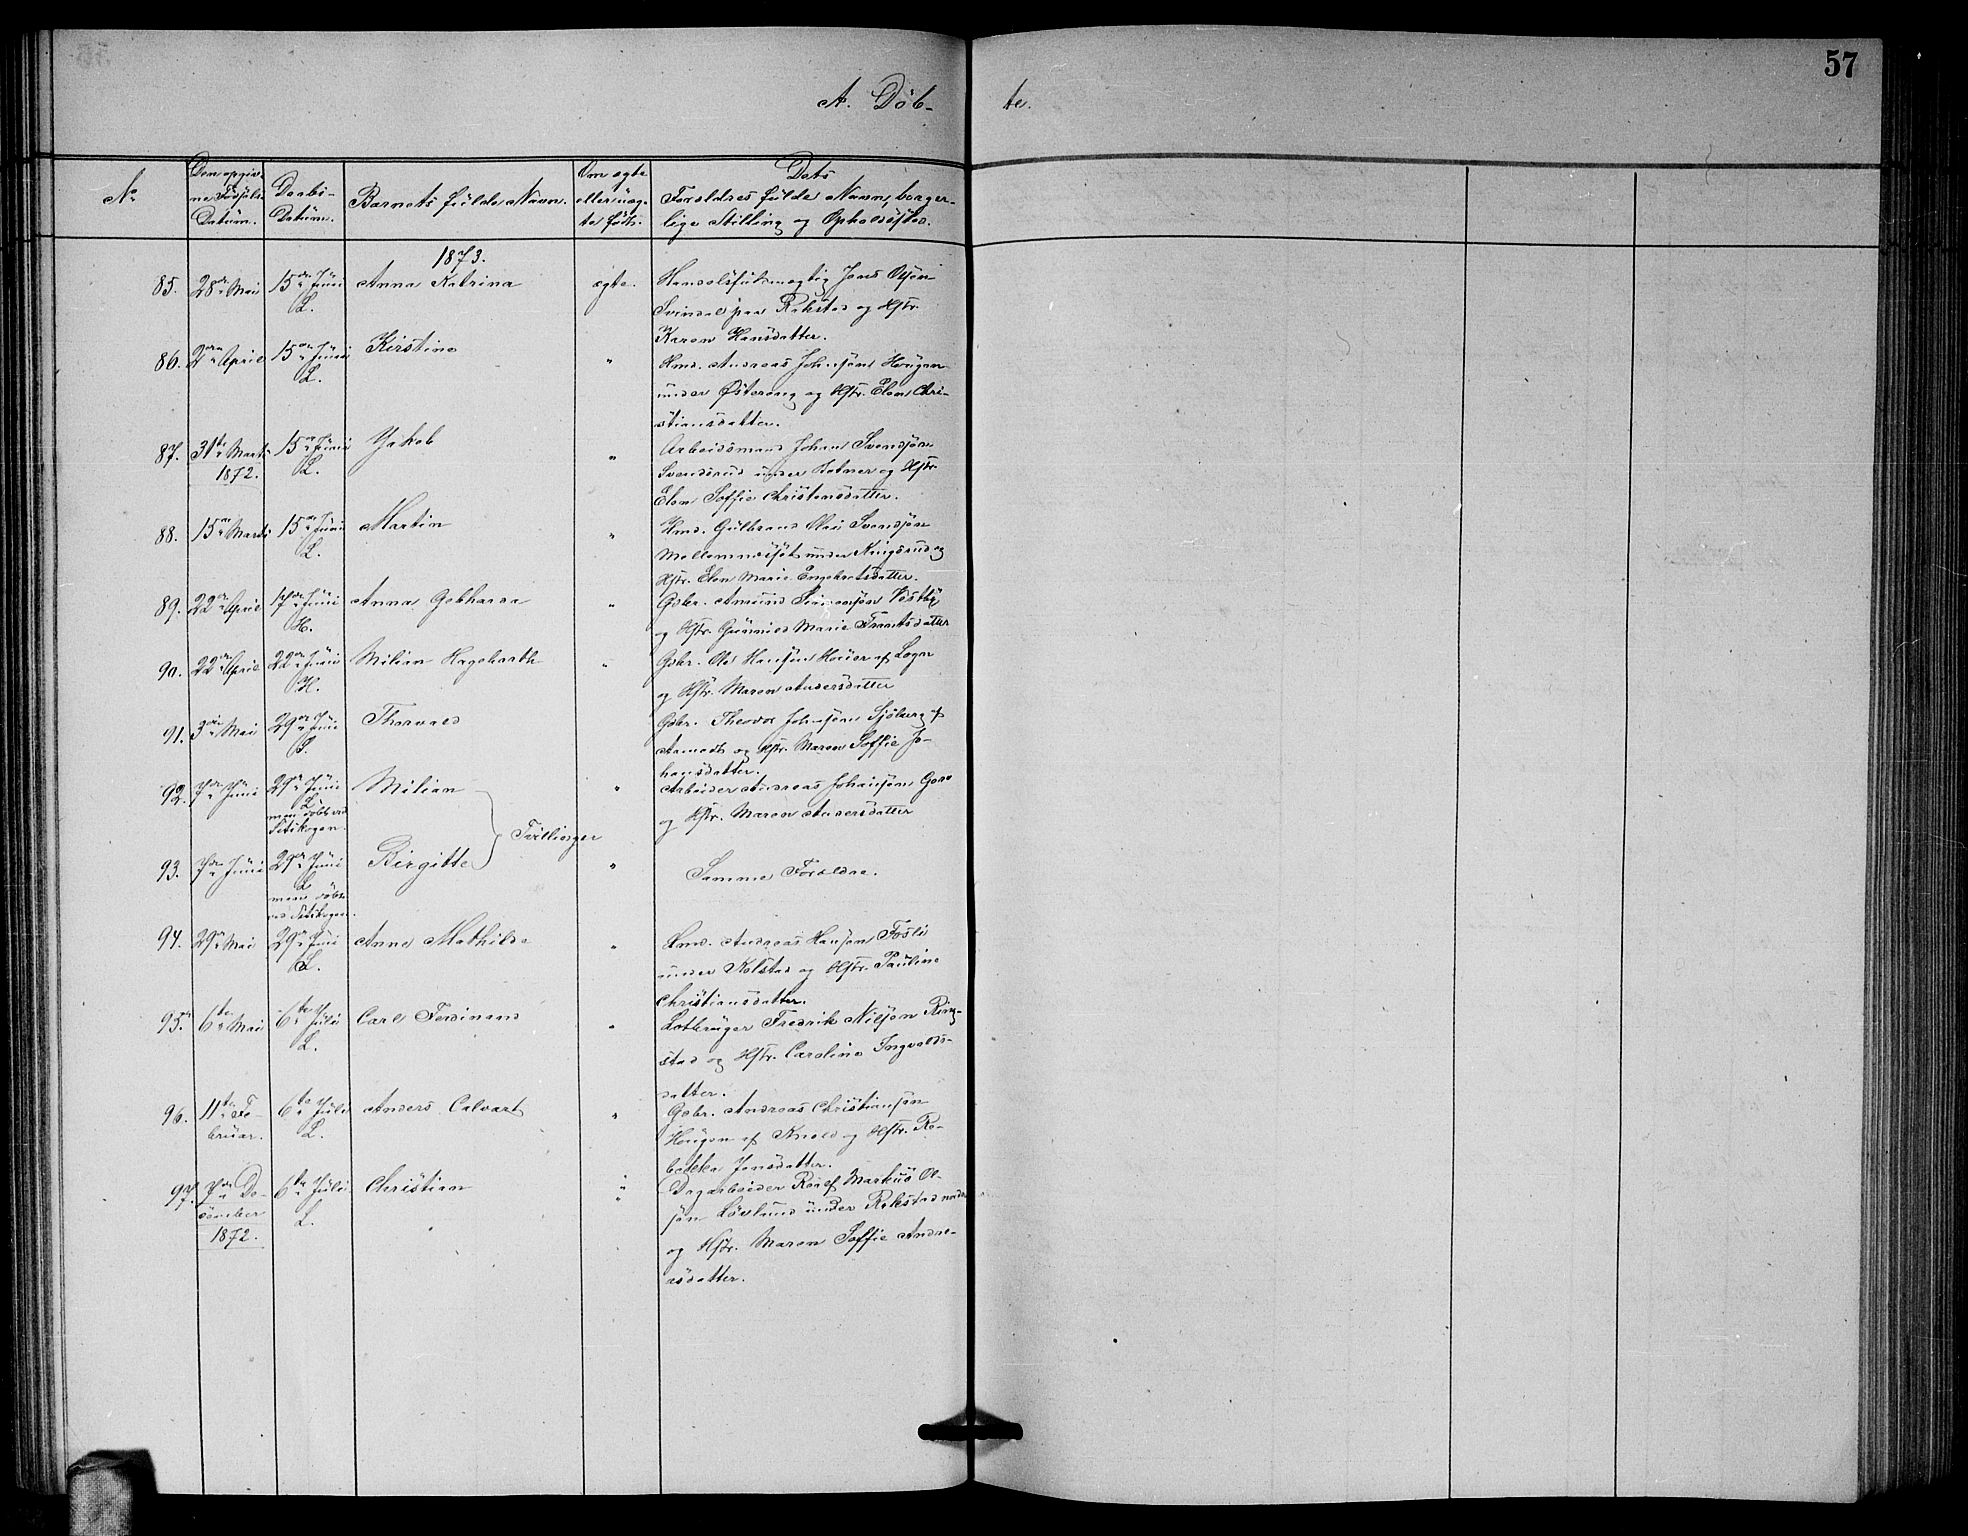 57
A. Døb-
te.
No
Den opgiv-
ne Fødsels-
Datum.
Daabs-
Datum.
Barnets fulde Navn.
Om ægte
eller uæg-
te født.
Dets
Forældres fulde Navn, borger-
lige Stilling og Opholdssted.
1873.
85. 28de Mai 15de Juni Anna Katrina ægte. Handelsfuldmægtig Jens Olsen
L. Svindal paa Rakstad og Hstr.
Karen Hansdatter.
86. 2den April 15de Juni Kirstine " Hmd. Andreas Johnsen Haugen
L. under Østereng og Hstr. Elen Chri-
stiansdatter.
87. 31te Marts 15de Juni Jakob " Arbeidsmand Johan Svendsen
1872. L. Svendsrud under og Hstr.
Elen Soffie Christensdatter.
88. 15de Marts 15de Juni Martin " Hmd. Gulbrand Olai Svendsen
L. under Ringsrud og
Hstr. Elen Marie Engebretsdatter.
89. 22de April 17de Juni Anna Gebharda " Gbr. Amund Simensen Vestby
H. og Hstr. Gunnild Marie Frantsdatter
90. 22de April 22de Juni Milian Hagebarth " Gbr. Ole Hansen Houer af Logn
H. og Hstr. Maren Andersdatter
91. 3die Mai 29de Juni Thorvald Gbr. Theodor Johnsen Sjøberg af
L. og Hstr. Maren Soffie Jo-
hansdatter.
92. 7de Juni 29de Juni Milian " Arbeider Andreas Johansen
L. og Hstr. Maren Andersdatter
men døbt ved
Fetskogen.
Tvillinger
93. 7de Juni 29de Juni Birgitte " Samme Forældre.
L.
men døbt
ved Fetskogen.
94. 29de Mai 29de Juni Anne Mathilde " Hmd. Andreas Hansen Fosli
L. under Kolstad og Hstr. Pauline
Christiansdatter.
95. 6te Mai 6te Juli Carl Ferdinand " Lodbruger Fredrik Nilsen Ring-
L. stad og Hstr. Caroline Ingvalds-
datter.
96. 11te Fe- 6te Juli Anders Calvart " Gbr. Andreas Christiansen
bruar. L. Haugen af og Hstr. Re-
bekka Jensdatter.
97. 7de De- 6te Juli Christian " Dagarbeider Roaf Markus Ol-
cember L. sen Løvlund under Rakstad
1872. og Hstr. Maren Soffie Andre-
asdatter.